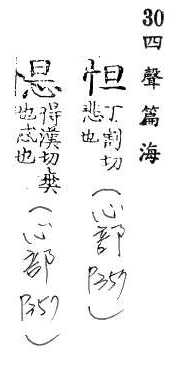 30四聲篇海
怛 丁割切
悲也 (心部 P357)
得漢切爽
也惑也 (心部 P357)